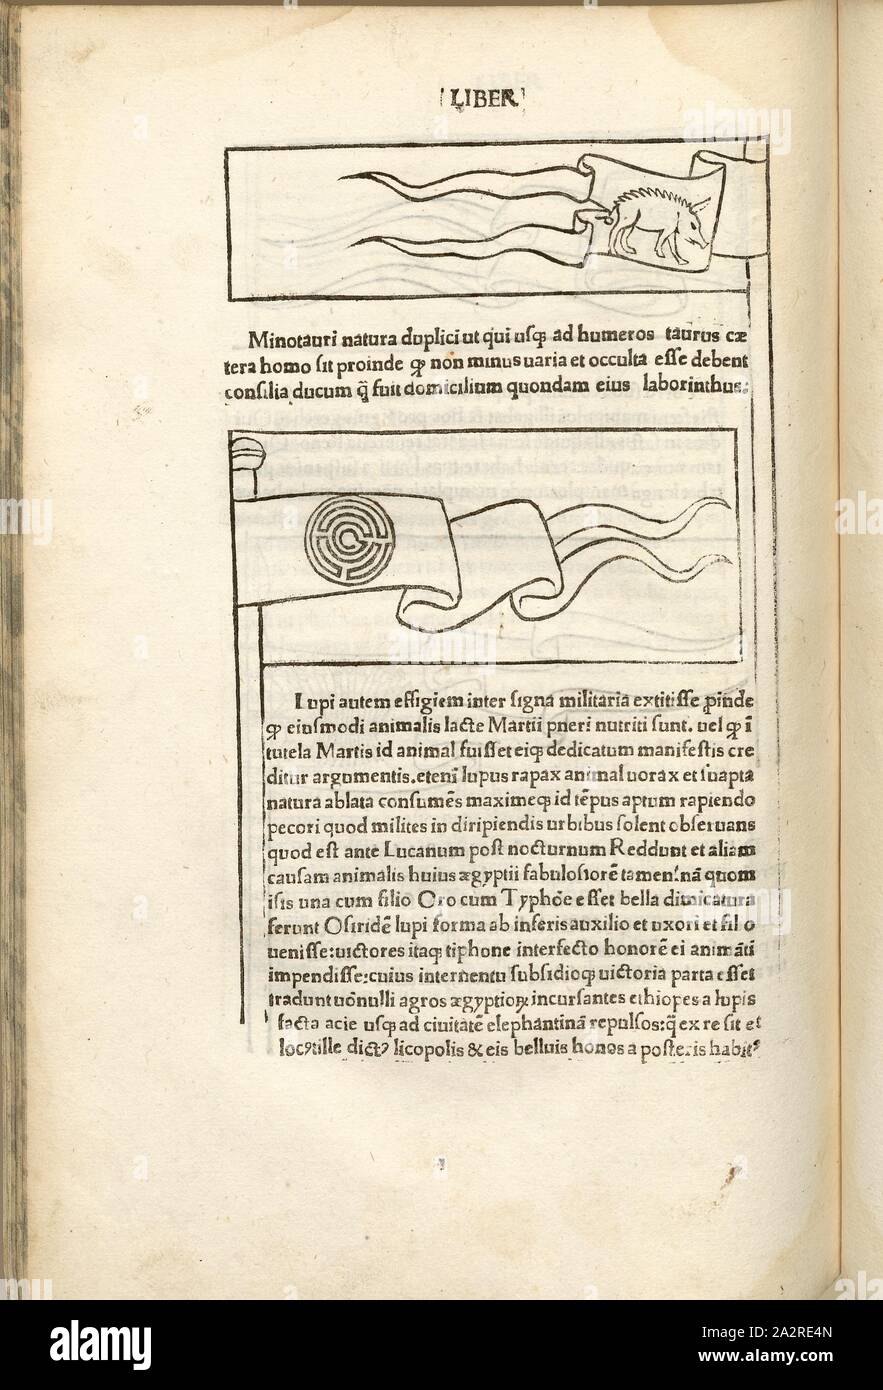 LIBER
Minotauri natura dupliciut qui usꝙ ad humeros taurus cæ
tera homo sit proinde ꝙ non minus uaria et occulta esse debent
consilia ducum q̃ fuit domicilium quondam eius laborinthus:
Lupi autem effigiem inter signa militaria extitisse ꝓinde
ꝙ eiusmodi animalis lacte Martii pueri nutriti sunt. uel ꝙ ĩ
tutela Martis id animal fuisset eiꝙ dedicatum manifestis cre
ditur argumentis. etenĩ lupus rapax animal uorax et suapta
natura ablata consumẽs maximeꝙ id tẽpus aptum rapiendo
pecori quod milites in diripiendis urbibus solent obseruans
quod est ante Lucanum post nocturnum Reddunt et aliam
causam animalis huius ægyptii fabulosiorẽ tamen! nã quom
isis una cum filio Oro cum Typhõe esset bella dimicatura
ferunt Osiridẽ lupi forma ab inferis auxilio et uxori et fil o
uenisse: uictores itaꝙ tiphone interfecto honorẽ ei animãti
impendisse: cuius interuentu subsidioꝙ uictoria parta esset
tradunt nõnulli agros ægyptioꝝ incursantes ethiopes a lupis
facta acie usꝙ ad ciuitatẽ elephantinã repulsos: q̃ ex re sit et
locꝰ ille dictꝰ licopolis & eis belluis honos a posteris habitꝰ
alamy
Image ID: 2A2RE4N
www.alamy.com